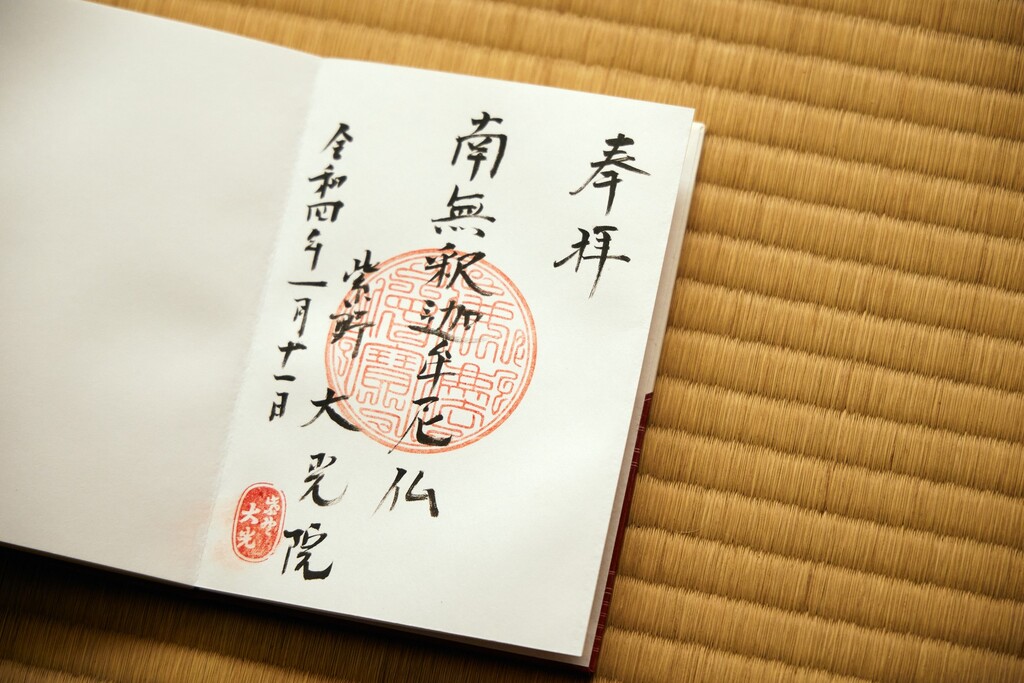 奉拝
南無釈迦牟尼仏
紫野
大光院
令和四年一月十一日
紫野
大光